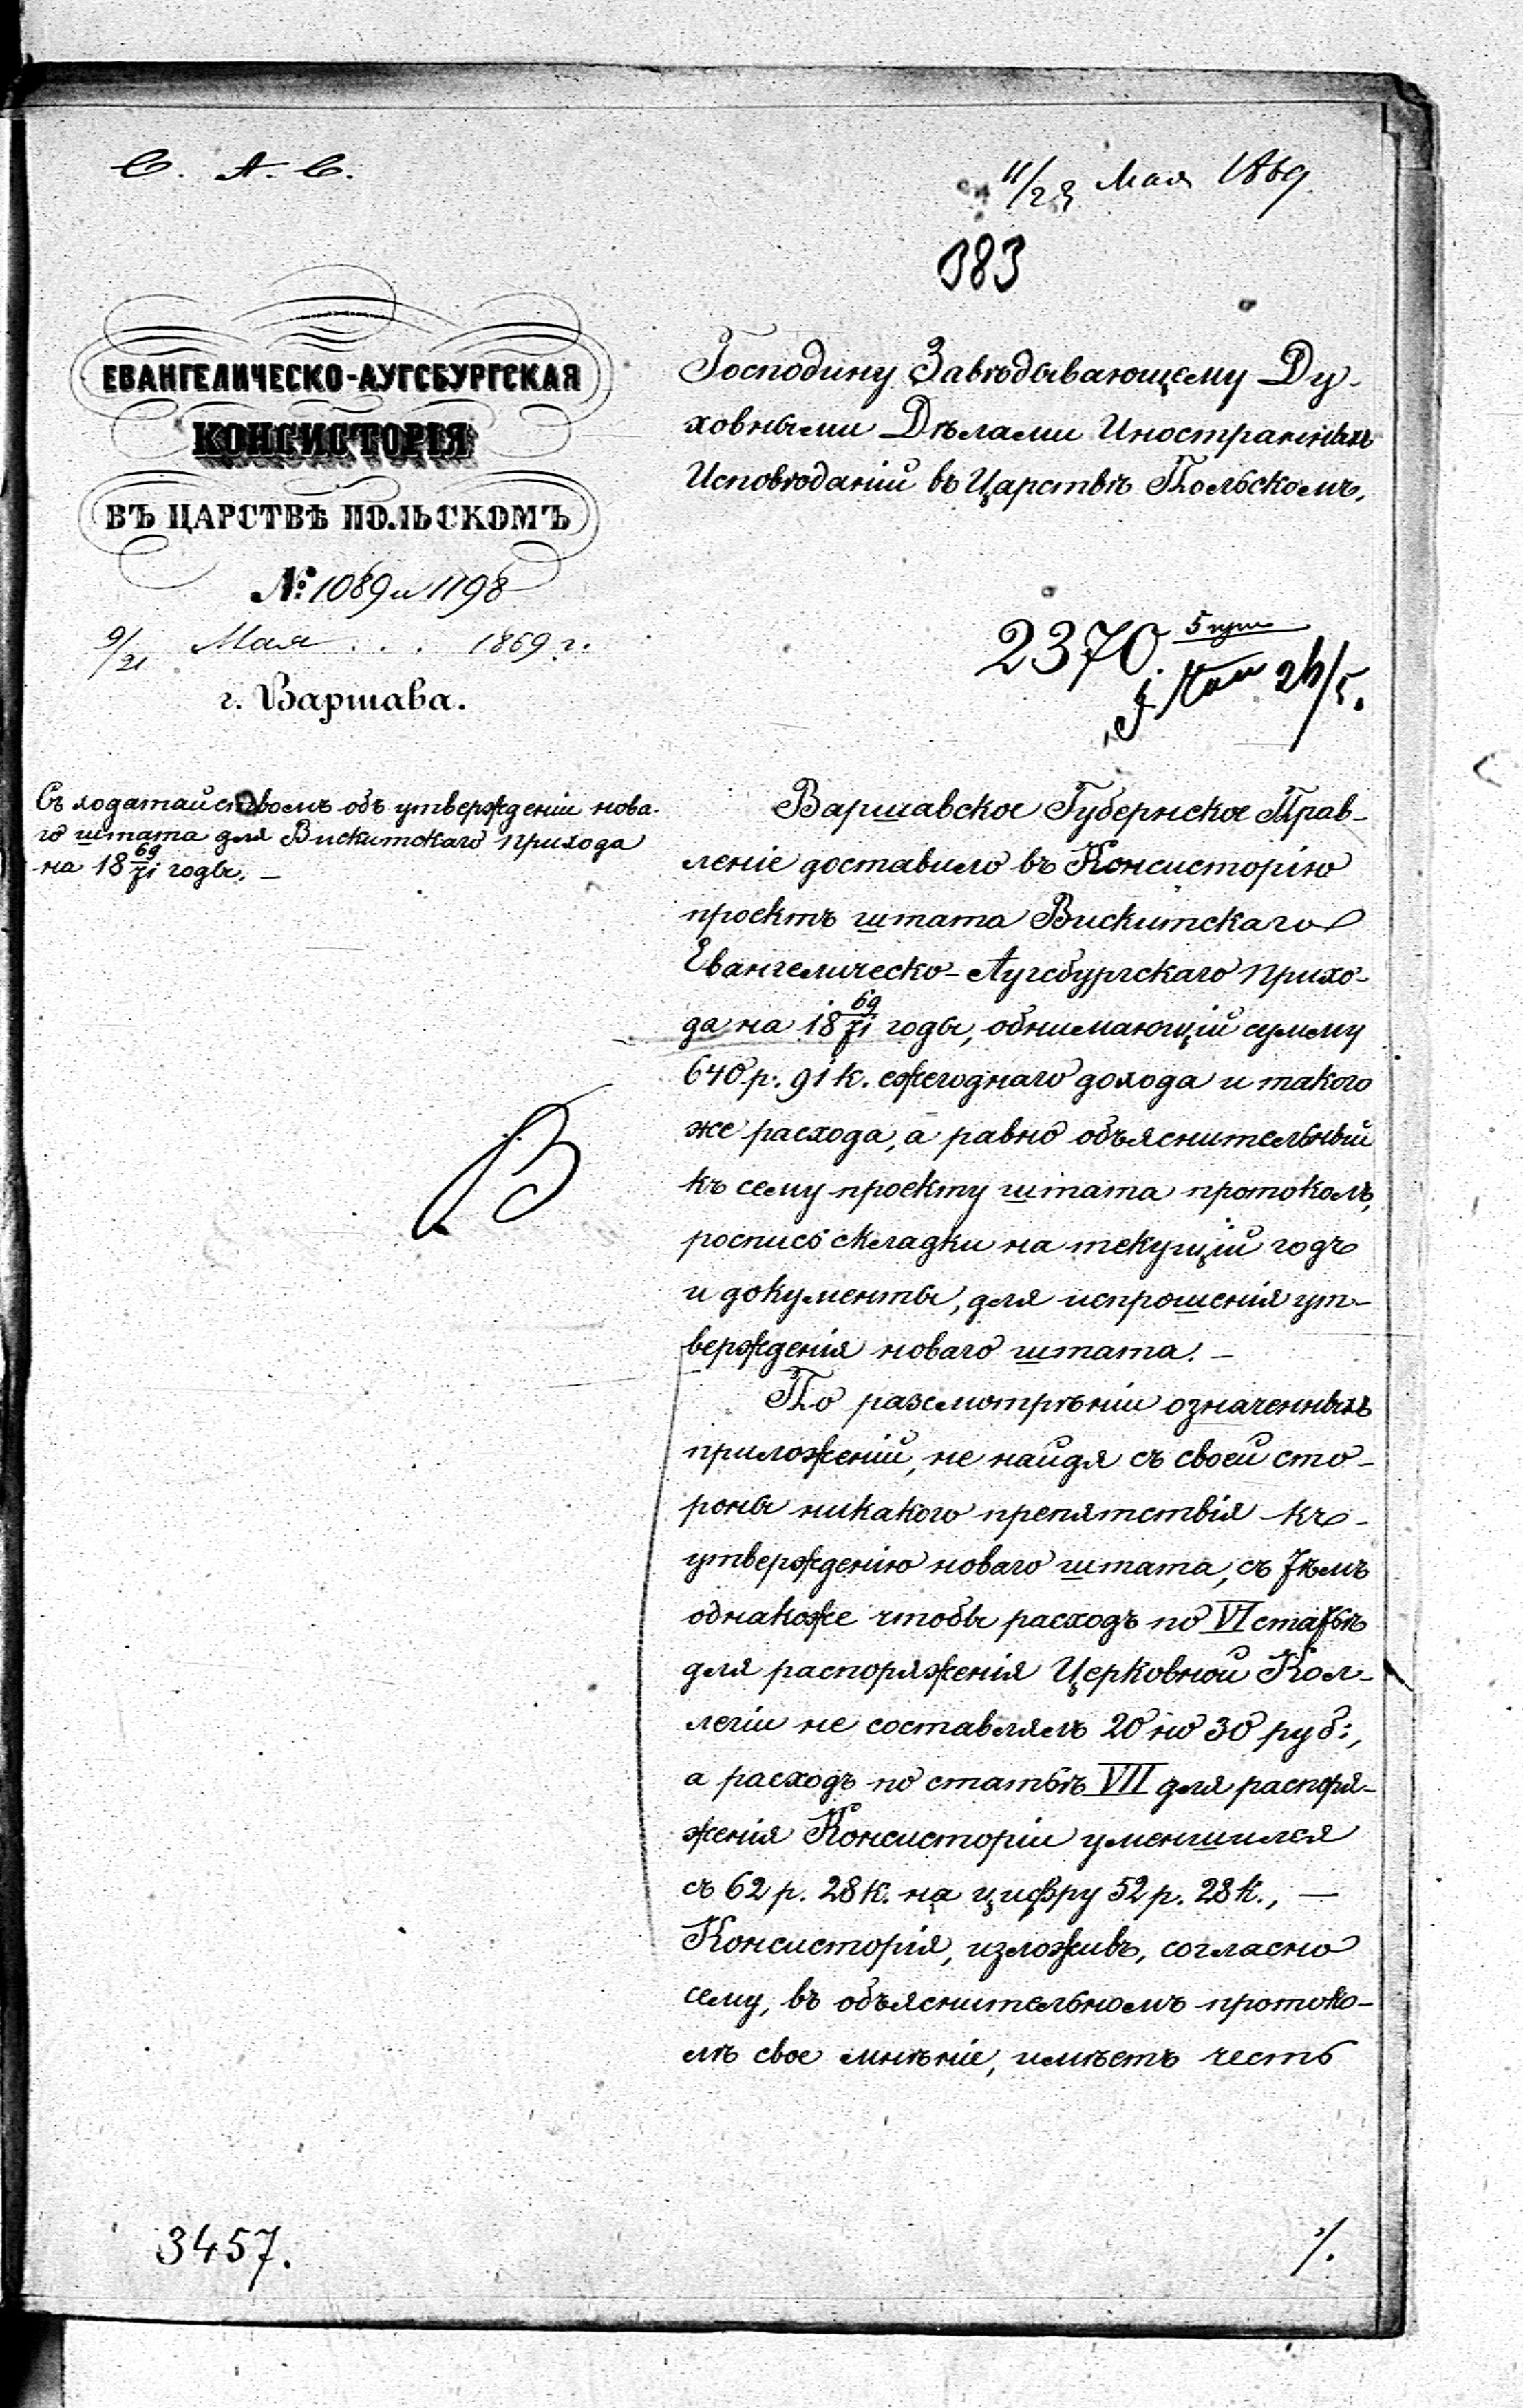 С. А. С.
11/23 Мая 1869
383
ЕВАНГЕЛИЧЕСКО-АУГСБУРГСКАЯ
КОНСИСТОРІЯ
ВЪ ЦАРСТВѢ ПОЛЬСКОМЪ
№ 1089 и 1198
9/21 Мая . . . 1869 г.
г. Варшава.
Съ ходатайствомъ объ утвержденіи нова-
го штата для Вискитскаго прихода
на 18 69/71 годы. –
Господину Завѣдывающему Ду-
ховными Дѣлами Иностранныхъ
Исповѣданій въ Царствѣ Польскомъ.
2370.
26/5.
Варшавское Губернское Прав-
леніе доставило въ Консисторію
проектъ штата Вискитскаго
Евангелическо-Аугсбургскаго прихо-
да на 18 69/71 годы, обнимающій сумму
640 р. 91 к. ежегоднаго дохода и такого
же расхода, а равно объяснительный
къ сему проекту штата протоколъ,
роспись складки на текущій годъ
и документы, для испрошенія ут-
вержденія новаго штата. –
По разсмотрѣніи означенныхъ
приложеній, не найдя съ своей сто-
роны никакого препятствія къ
утвержденію новаго штата, съ тѣмъ
однакоже чтобы расходъ по VI статьѣ
для распоряженія Церковной Кол-
легіи не составлялъ 20 но 30 руб:,
а расходъ по статьѣ VII для распоря-
женія Консисторіи уменшился
съ 62 р. 28 к. на цифру 52 р. 28 к., –
Консисторія, изложивъ, согласно
сему, въ объяснительномъ протоко-
лѣ свое мнѣніе, имѣетъ честь
3457.
./.